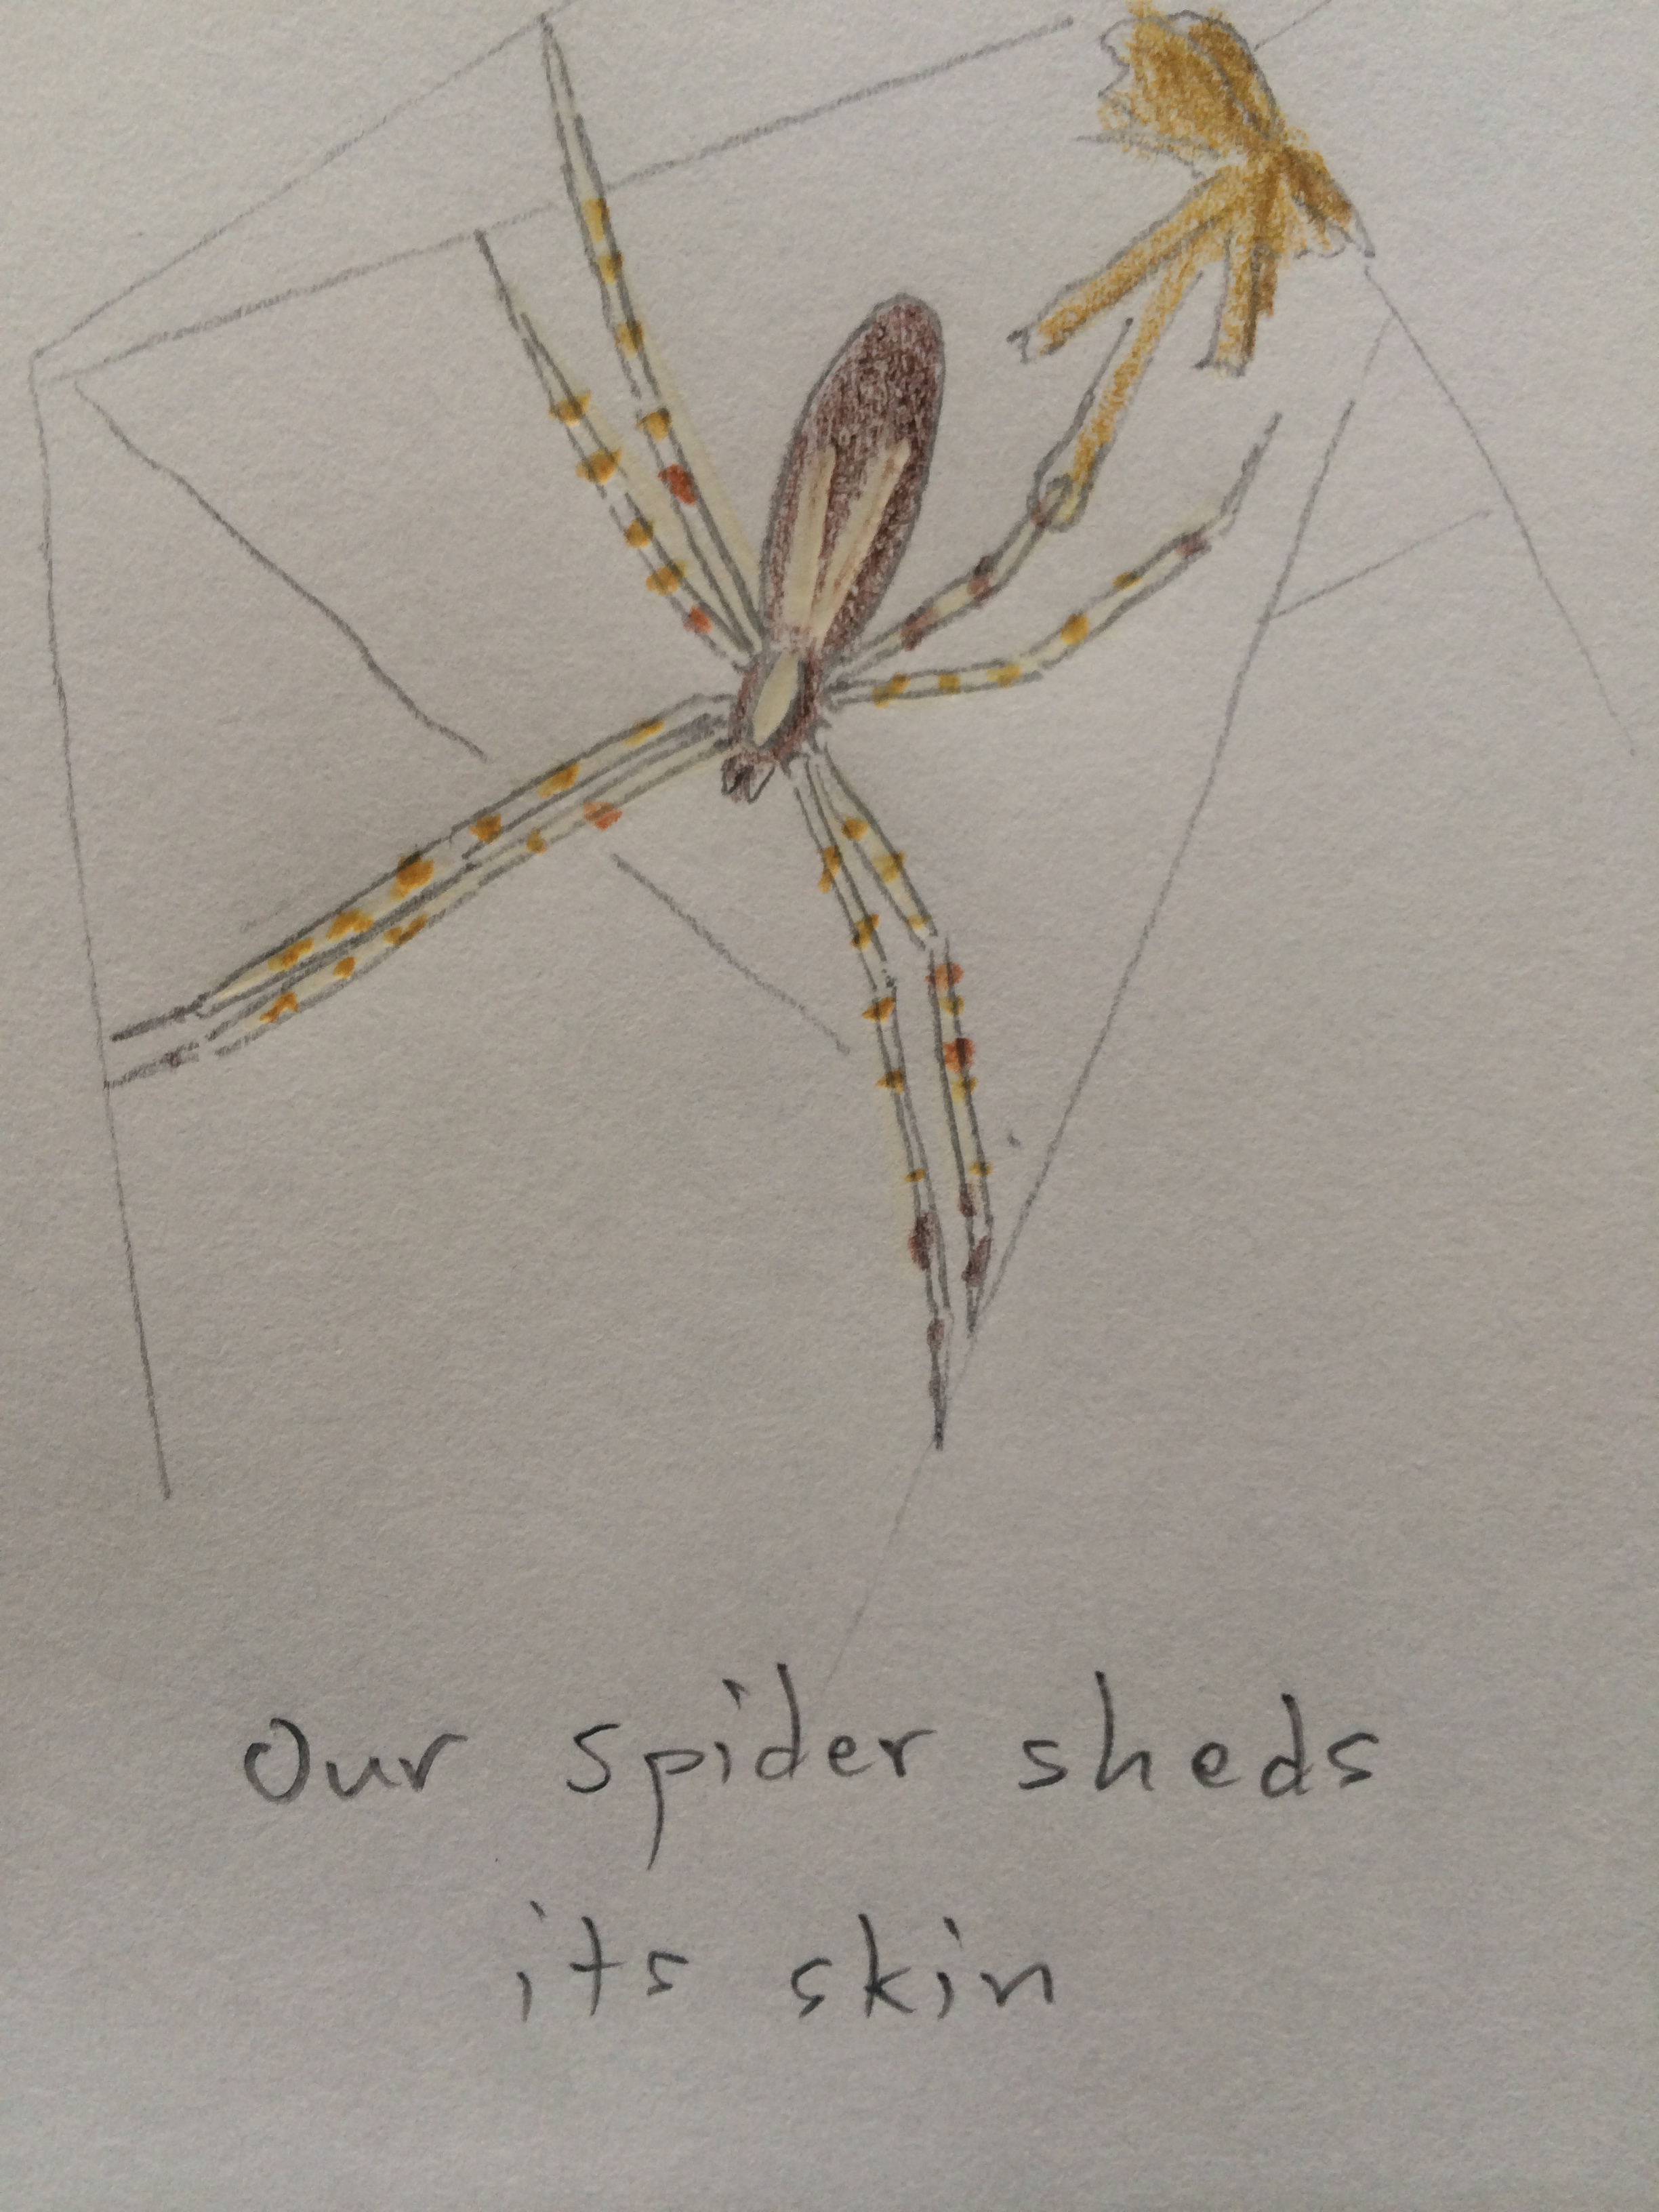 Our spider sheds
its skin